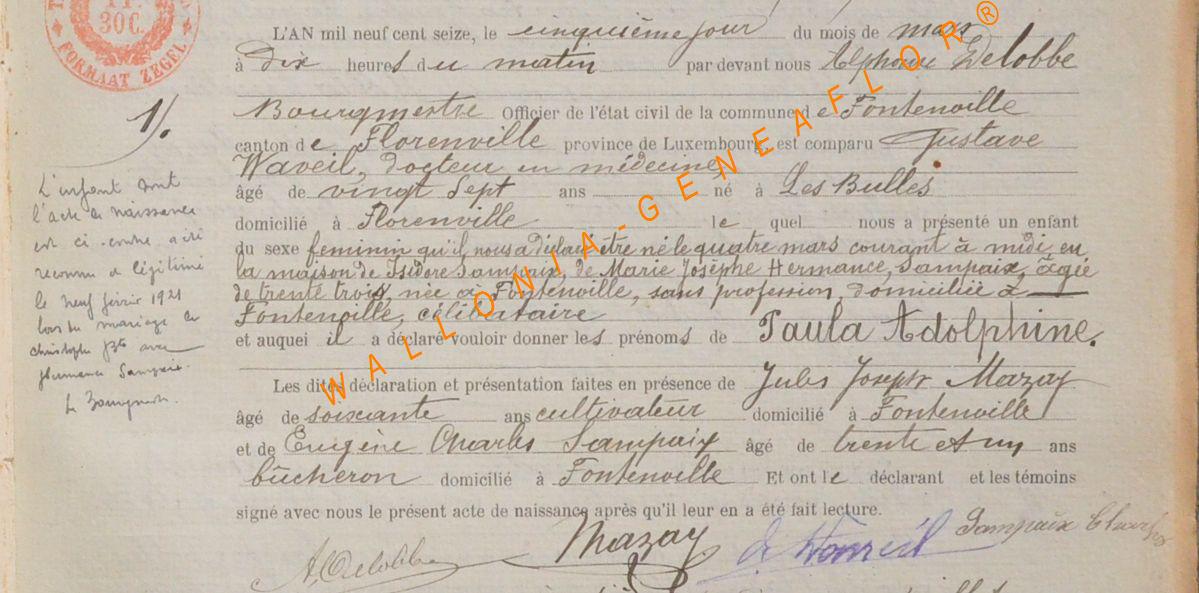 30C.
FORMAAT ZEGEL
1/.
L'enfant dont
l'acte de naissance
est ci-contre a été
reconnu et légitimé
le neuf février 1921
lors du mariage de
Christophe Bte avec
Hermance Sampaix.
L. Bourgmestre.
L'AN mil neuf cent seize, le cinquième jour du mois de mars
à Dix heures du matin par devant nous Alphonse Delobbe
Bourgmestre Officier de l'état civil de la commune de Fontenoille
canton de Florenville province de Luxembourg, est comparu Gustave
Waveil, docteur en médecine,
âgé de vingt sept ans né à Les Bulles
domicilié à Florenville le quel nous a présenté un enfant
du sexe feminin qu'il nous a déclaré être né le quatre mars courant à midi, en
la maison de Isidore Sampaix, de Marie Josèphe Hermance, Sampaix, âgée
de trente trois, née à Fontenoille, sans profession, domiciliée à
Fontenoille, célibataire
et auquel il a déclaré vouloir donner les prénoms de Paula Adolphine.
Les dites déclaration et présentation faites en présence de Jules Joseph Mazay
âgé de soixante ans cultivateur domicilié à Fontenoille
et de Eugène Charles Sampaix âgé de trente et un ans
bûcheron domicilié à Fontenoille Et ont le déclarant et les témoins
signé avec nous le présent acte de naissance après qu'il leur en a été fait lecture.
A. Delobbe Mazay Sampaix Charles
WALLONIA-GENEAFLOR®